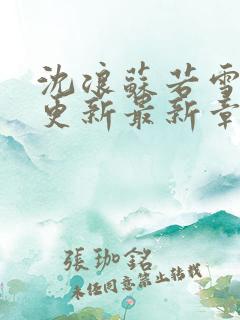 沈浪蘇若雪
更新最新章
張珈銘
未经同意禁止转载